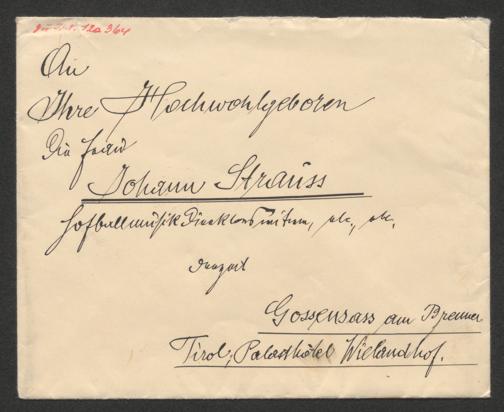 An
Ihre Hochwohlgeboren
Die Frau
Johann Strauss
Hofballmusik Direktorswitwe, etc., etc.
derzeit
Gossensass am Brenner
Tirol, Palasthôtel Wielandhof.